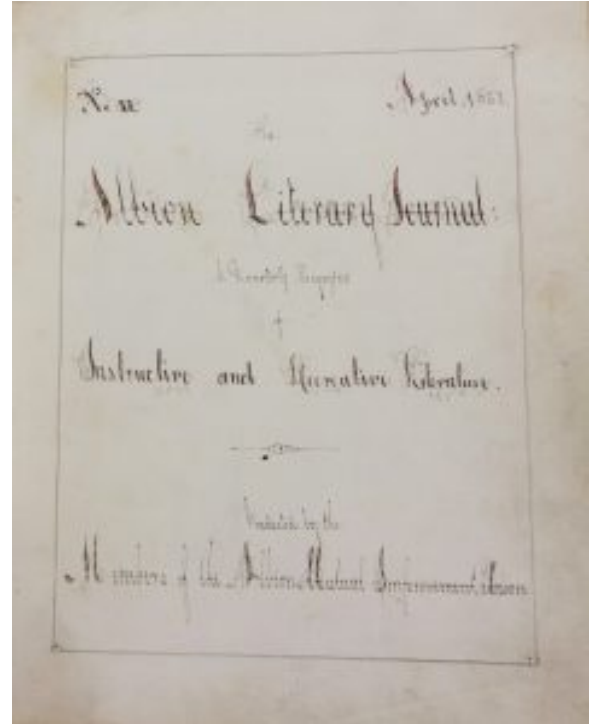 No. II April, 186
The
Albion Literary Journal:
A Quarterly Magazine
of
Instructive and Recreative Literature.
Conducted by the
Members of the Albion Mutual Improvement Union